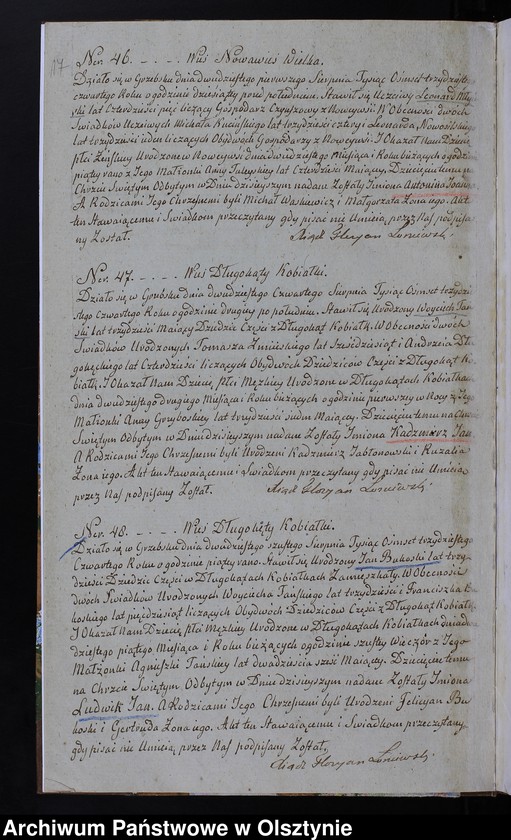 17
Ner. 46. _ . _ . _ Wieś Nowawieś Wielka.
Działo się w Grzebsku dnia dwudziestego pierwszego Sierpnia Tysiąc Osmset trzydziest
czwartego Roku o godzinie dziesiąty przed południem. Stawił się Uczciwy Leonard
lat Czterdzieści pięć liczący Gospodarz Czynszowy z Nowejwsi. W Obecności dwóch
Swiadków Uczciwych Michała lat trzydzieści cztery i Leonarda
lat trzydzieści ieden liczących Obydwóch Gospodarzy z Nowejwsi. I Okazał Nam Dziecię
płci Żeńskiey Urodzone w Nowejwsi dnia dwudziestego Miesiąca i Roku bużących o godzinie
piąty rano z Jego Małżonki Anny lat Czterdzieści Maiący. Dziecięciu temu na
Chrzcie Swiętym Odbytym w Dniu dzisieyszym nadane Zostały Imiona Antonina Joanna.
A Rodzicami Jego Chrzesnemi byli Michał Waśkiewicz i Małgorzata Zona iego. Akt
ten Stawaiącemu i Swiadkom przeczytany gdy pisać nie Umieią, przez Nas podpisa
ny Został.
Xiądz Floryan Łuniewski
Ner. 47. _ . _ . _ Wieś Długokąty Kobiałki.
Działo się w Grzebsku dnia dwudziestego Czwartego Sierpnia Tysiąc Osmset trzydzie
stego Czwartego Roku o godzinie drugiey po południu. Stawił się Urodzony Woyciech Tań
ski lat trzydzieści Maiący Dziedzic Części z Długokąt Kobiałk. W Obecności dwóch
Swiadków Urodzonych Tomasza lat Szesćdziesiąt i Andrzeia Dłu
gokęckiego lat Czterdzieści liczących Obydwóch Dziedziców Części z Długokąt Ko
białk. I Okazał Nam Dziecię płci Męzkiey Urodzone w Długokątach Kobiałkach
dnia dwudziestego drugiego Miesiąca i Roku bużących o godzinie pierwszy w Nocy z Jego
Małżonki Anny Grzybowskiy lat trzydzieści siedm Maiący. Dziecięciu temu na Chrzcie
Swiętym Odbytym w Dniu dzisieyszym nadane Zostały Imiona Kadzmierz Jan.
A Rodzicami Jego Chrzesnemi byli Urodzeni Kadzmierz Jabłonowski i Ruzalia
Zona iego. Akt ten Stawaiącemu i Swiadkom przeczytany gdy pisać nie Umieią
przez Nas podpisany Został.
Xiądz Floryan Łuniewski
Ner. 48. _ . _ . _ Wieś Długokąty Kobiałki.
Działo się w Grzebsku dnia dwudziestego szustego Sierpnia Tysiąc Osmset trzydziestego
Czwartego Roku o godzinie piąty rano. Stawił się Urodzony Jan Bukoski lat trzy
dzieści Dziedzic Części w Długokątach Kobiałkach Zamieszkały. W Obecności
dwóch Swiadków Urodzonych Woyciecha Tańskiego lat trzydzieści i Franciszka Bu
koskiego lat pięćdziesiąt liczących Obydwóch Dziedziców Części z Długokąt Kobiałk
I Okazał Nam Dziecię płci Męzkiey Urodzone w Długokątach Kobiałkach dnia dwu
dziestego piątego Miesiąca i Roku bużących o godzinie szusty Wieczór z Jego
Małżonki Agnieszki Tańskiey lat dwadzieścia sześć Maiący. Dziecięciu temu
na Chrzcie Swiętym Odbytym w Dniu dzisieyszym nadane Zostały Imiona
Ludwik Jan. A Rodzicami Jego Chrzesnemi byli Urodzeni Felicyan Bu
koski i Gertruda Zona iego. Akt ten Stawaiącemu i Swiadkom przeczytany
gdy pisać nie Umieią, przez Nas podpisany Został,
Xiądz Floryan Łuniewski.
Archiwum Państwowe w Olsztynie